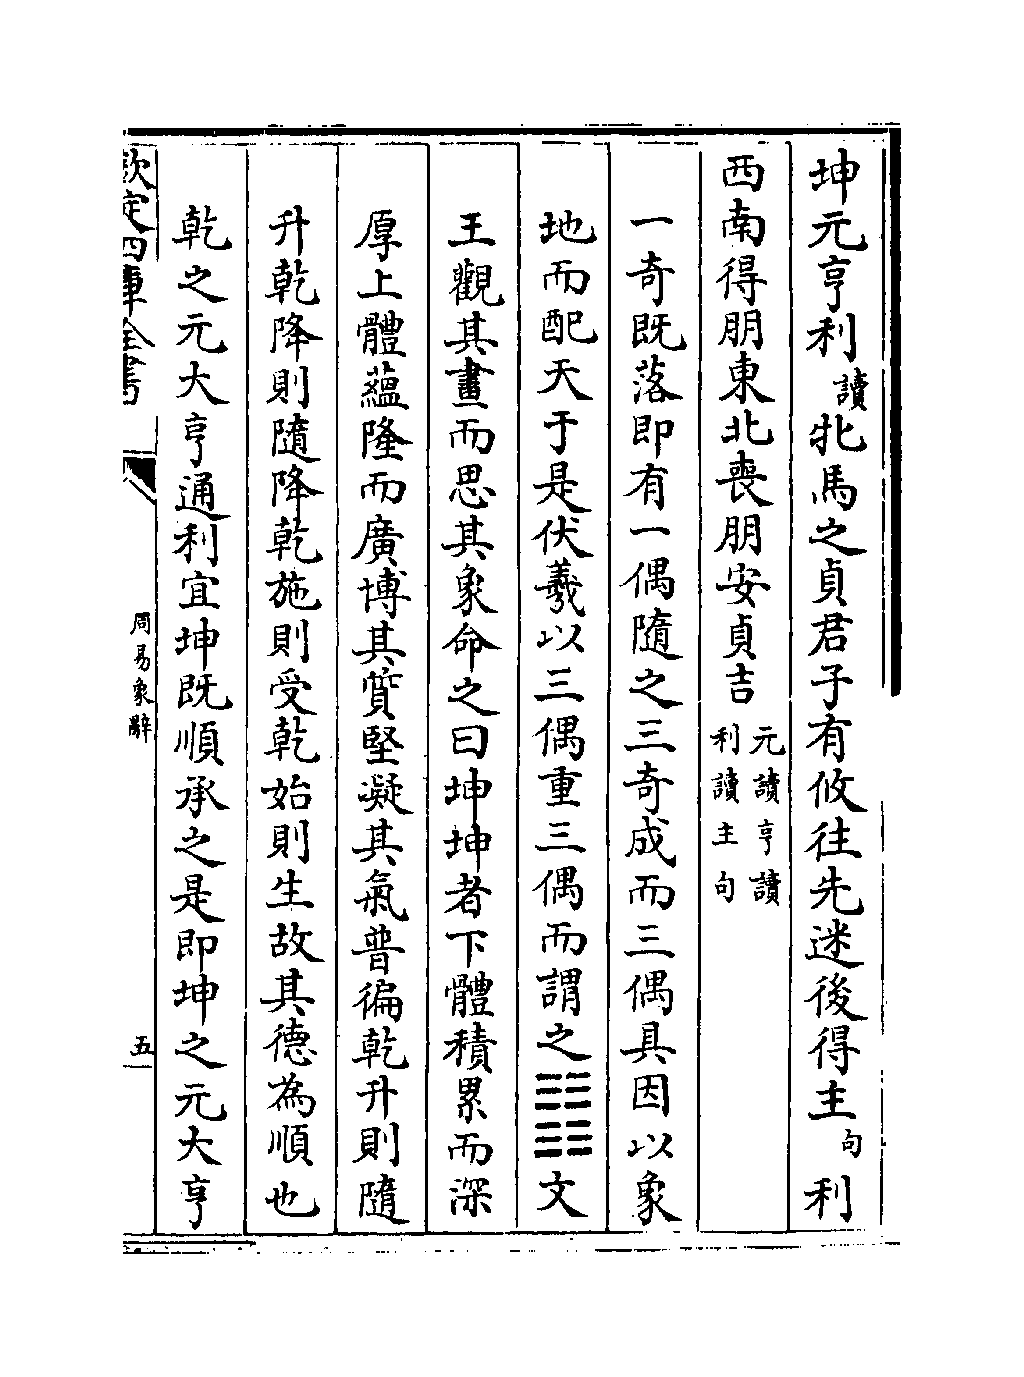 坤元亨利讀牝馬之貞君子有攸往先迷後得主句利
西南得朋東北喪朋安貞吉元讀亨讀利讀主句
一奇既落即有一偶隨之三奇成而三偶具因以象
地而配天于是伏羲以三偶重三偶而謂之䷁文
王觀其畫而思其象命之曰坤坤者下體積累而深
厚上體蘊隆而廣博其質堅凝其氣普徧乾升則隨
升乾降則隨降乾施則受乾始則生故其德為順也
乾之元大亨通利宜坤既順承之是即坤之元大亨
欽定四庫全書
周易象辭
五